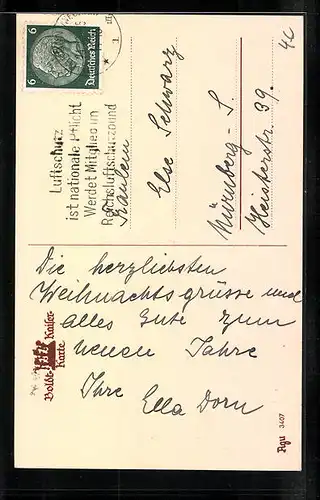 4c
6 6
Deutsches Reich
Luftschutz
ist nationale Pflicht
Werdet Mitglied im
Reichsluftschutzbund
Fräulein
Else Schwarz
Nürnberg - S.
Heisterstr. 39.
Die herzlichsten
Weihnachtsgrüsse und
alles Gute zum
neuen Jahre
Ihre
Ella Dorn
Boldt-
Kaiser-
Karte
Agu 3407